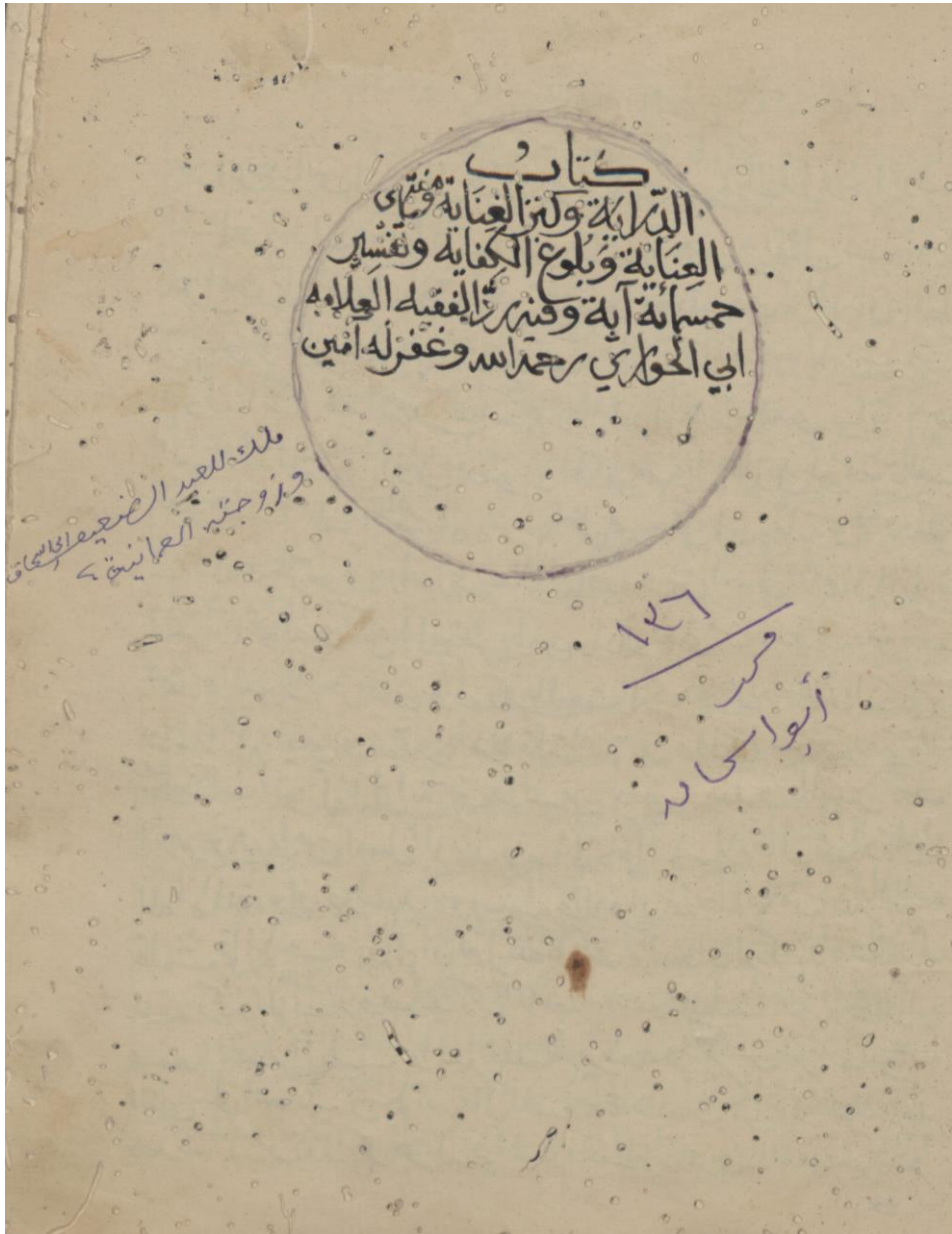 كتاب
الدّراية وكنز الغِنَاية ومنتهى
العِنَاية وَبُلوغ الكِفايه وتفسِير
خمسمائة آية وفيه رزّ الفقيه العلامه
ابي الحواري رحمه الله وغفر له آمين
ملك للعبد الضعيف ابي اسحاق
وزوجته العمانية
١٣٦
أبو اسحاق